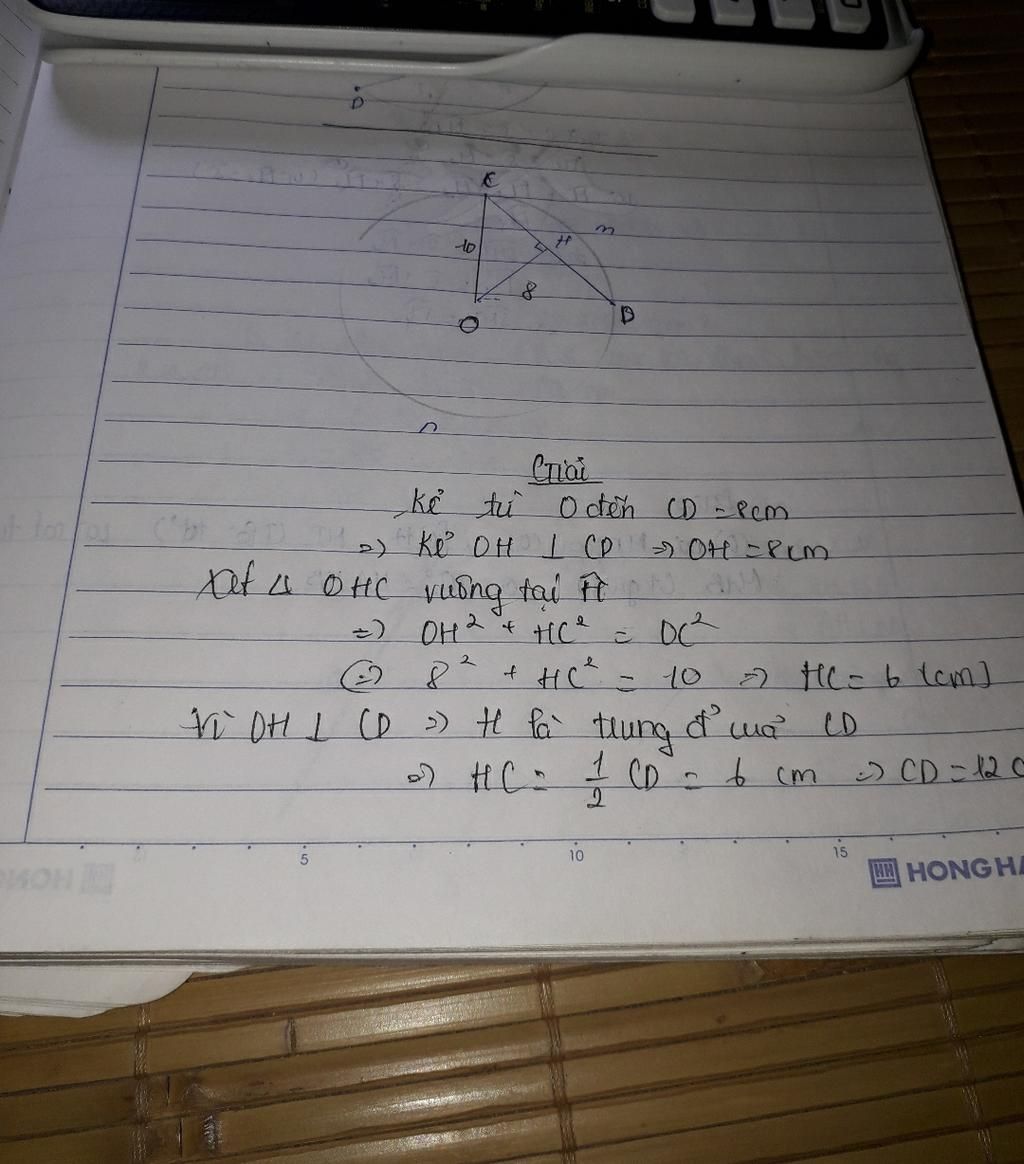 D
C
10
H
m
8
D
O
n
Giải
Kẻ từ O đến CD = 8cm
=> Kẻ OH ⊥ CD => OH = 8cm
Xét Δ OHC vuông tại H
=> OH² + HC² = OC²
<=> 8² + HC² = 10 => HC = 6 (cm)
Vì OH ⊥ CD => H là trung đ' của CD
=> HC = 1/2 CD = 6 cm => CD = 12 C
5 10 15
HH HONG HA